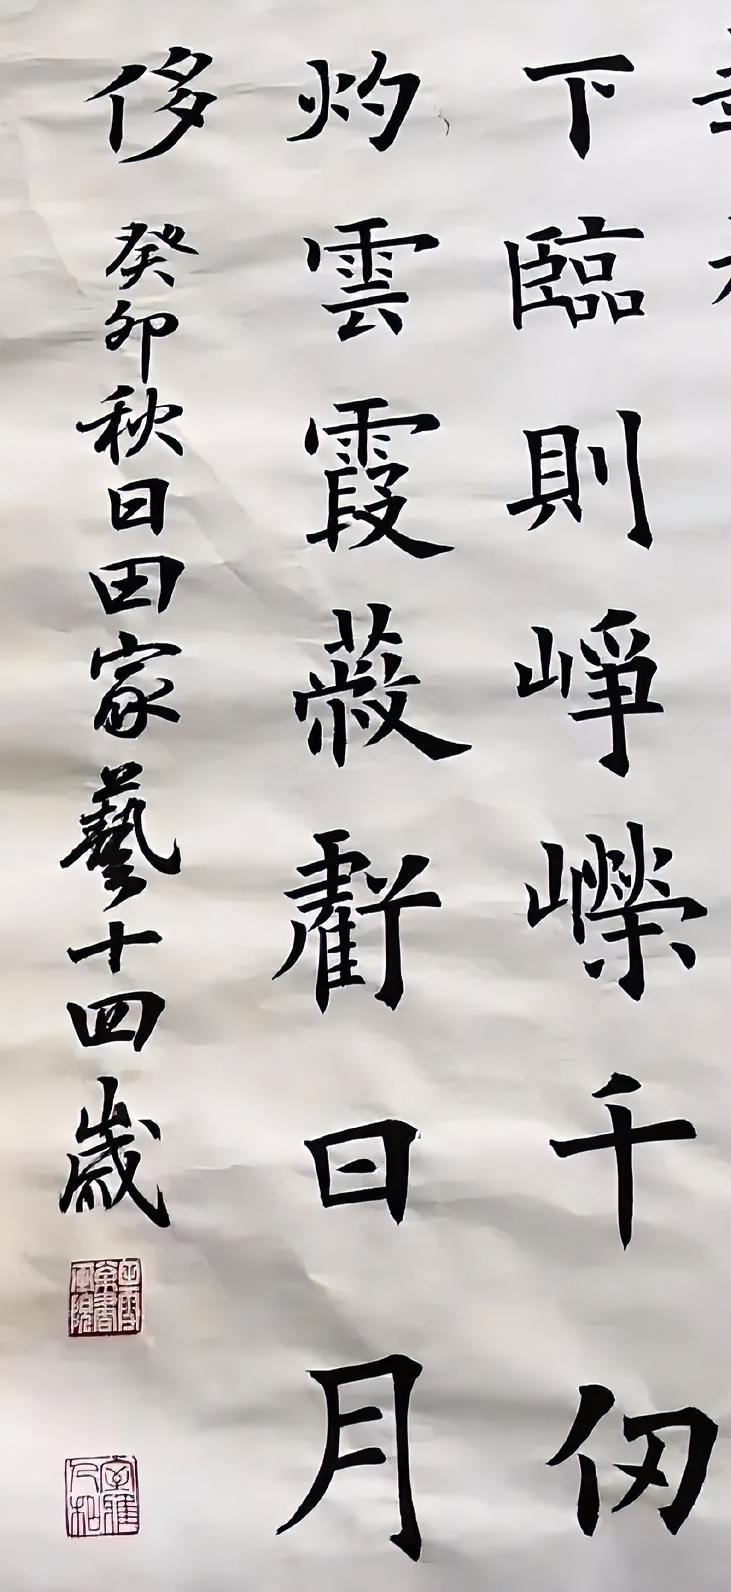 下臨則崢嶸千仞
灼雲霞蔽虧日月
侈 癸卯秋日田家藝十四歲